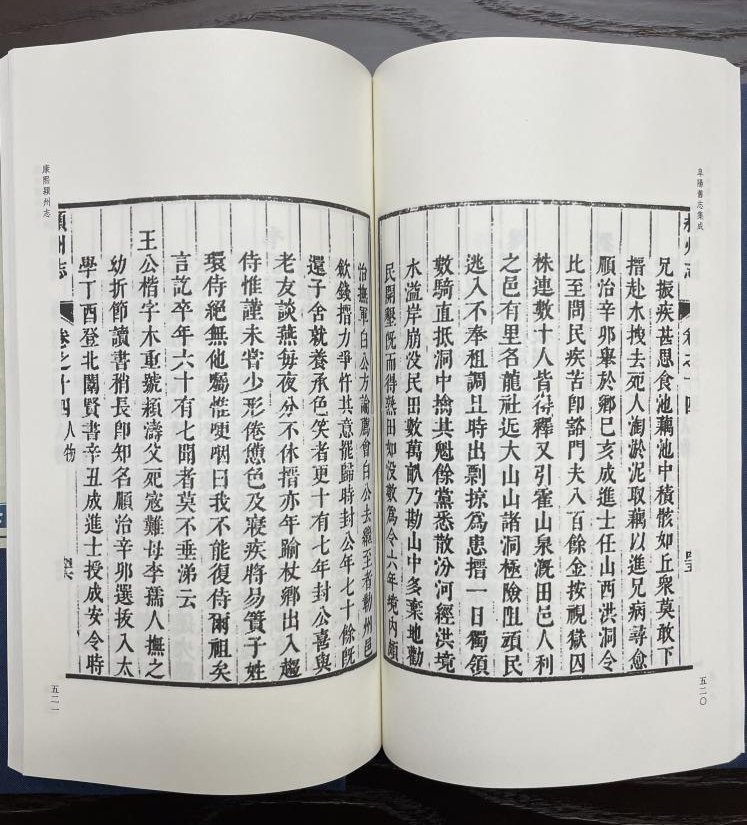 阜陽舊志集成
兄振疾甚思食池藕池中積骸如丘衆莫敢下
搢赴水拽去死人淘淤泥取藕以進兄病尋愈
順治辛卯舉於鄉己亥成進士任山西洪洞令
比至問民疾苦卽豁門夫八百餘金按視獄囚
株連數十人皆得釋又引霍山泉溉田邑人利
之邑有里名龍社近大山山諸洞極險阻頑民
逃入不奉租調且時出剽掠爲患搢一日獨領
數騎直抵洞中擒其魁餘黨悉散汾河經洪境
水溢岸崩没民田數萬畝乃勘山中多棄地勸
民開墾旣而得熟田如没數爲令六年境内頗
五二〇
治撫軍白公方論薦會白公去繼至者勒州邑
歛錢搢力爭忤其意罷歸時封公年七十餘旣
還子舍就養承色笑者更十有七年封公喜與
老友談燕每夜分不休搢亦年踰杖鄉出入趨
侍惟謹未嘗少形倦憊色及寢疾將易簀子姓
環侍絕無他囑惟哽咽曰我不能復侍爾祖矣
言訖卒年六十有七聞者莫不垂涕云
王公楷字木重號潁濤父死寇難母李孺人撫之
幼折節讀書稍長卽知名順治辛卯選拔入太
學丁酉登北闈賢書辛丑成進士授成安令時
潁州志 卷之十四 人物
康熙潁州志
五二一